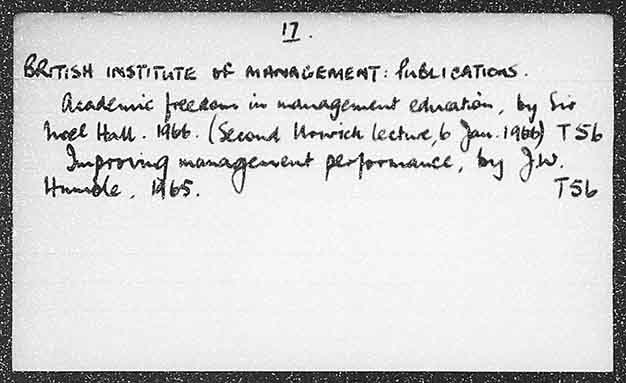 17.
BRITISH INSTITUTE of MANAGEMENT: PUBLICATIONS.
Academic freedom in management education, by Sir
Noel Hall. 1966. (Second Urwick lecture, 6 Jan. 1966) T56
Improving management performance, by J.W.
Humble. 1965. T56